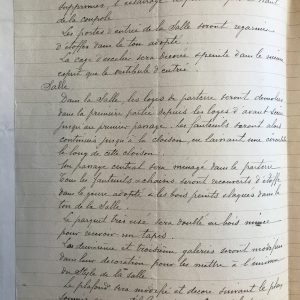 supprimer, l'éclairage
de la coupole
Les portes d'entrée de la salle seront regarnies
d'étoffes dans le ton adopté.
La cage d'escalier sera décorée et peinte dans le même
esprit que le vestibule d'entrée.
Salle
Dans la Salle, les loges de parterre seront démolies
dans la première partie depuis les loges d'avant-scène
jusqu'au premier passage. Les fauteuils seront alors
continués jusqu'à la cloison, en laissant une
long de cette cloison.
Un passage central sera ménagé dans le parterre
Tous les fauteuils actions seront recouverts d'étoffe
dans le genre adopté, & les bois peints et laqués dans le
ton de la Salle.
Le parquet très usé sera doublé en bois mince
pour recevoir un tapis.
Les deuxième et troisième galeries seront modifiées
dans leur décoration pour les mettre à l'unisson
du style de la salle.
Le plafond sera modifié et décoré suivant le plan